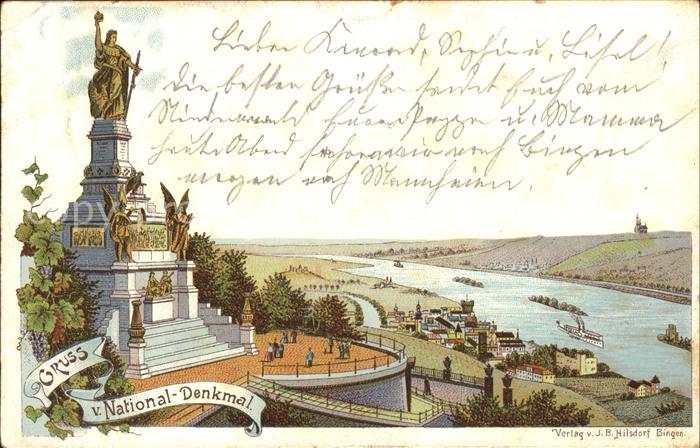 Lieber Konrad, Sophie u. Liesel!
Die besten Grüße sendet Euch vom
Niederwald Euer Pappa u. Mamma
heute Abend fahren wir nach Bingen
morgen nach Mannheim.
GRUSS
v. National-Denkmal.
Verlag v. J. B. Hilsdorf Bingen.